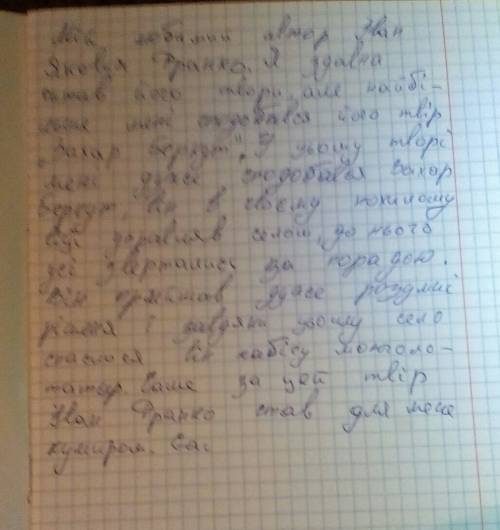 Мій любимий автор Іван
Якович Франко. Я здавна
читав його твори, але найбі-
льше мені сподобався його твір
„Захар Беркут". У цьому творі
мені дуже сподобався Захар
Беркут, він в своєму похилому
віці управляв селом, до нього
усі звертались за порадою.
Він приймав дуже розумні
рішення і завдяки цьому село
спаслося від набігу монголо-
татар. Саме за цей твір
Іван Франко став для мене
кумиром.